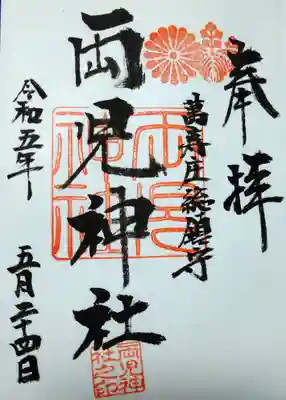 奉拝
萬寿庄総鎮守
両児神社
両児神社
両児神社之印
令和五年
五月二十四日